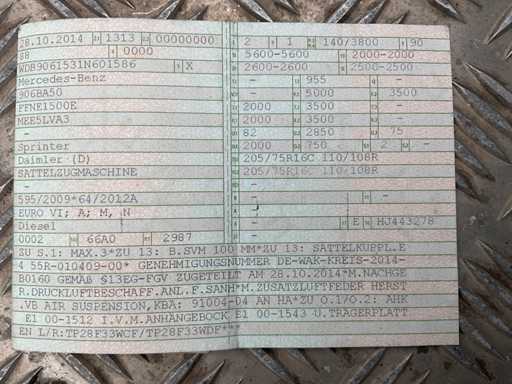 28.10.2014 1313 00000000
88 0000
WDB9061531N601586 X
Mercedes-Benz
906BA50
FFNE1500E
MEE5LVA3
-
Sprinter
Daimler (D)
SATTELZUGMASCHINE
-
595/2009*64/2012A
EURO VI; A; M, N
Diesel
0002 66A0 2987
2 1 140/3800 90
5600-5600 2000-2000
2600-2600 2500-2500
- 955 -
- 5000 3500
2000 3500 -
2000 3500 -
82 2850 75
2000 750 2 -
205/75R16C 110/108R
205/75R16C 110/108R
- -
-
- E HJ443278
ZU S.1: MAX.3*ZU 13: B.SVM 100 MM*ZU 13: SATTELKUPPL.E
4 55R-010409-00* GENEHMIGUNGSNUMMER DE-WAK-KREIS-2014-
B0160 GEMÄß §13EG-FGV ZUGETEILT AM 28.10.2014*M.NACHGE
R.DRUCKLUFTBESCHAFF.ANL.F.SANH*M.ZUSATZLUFTFEDER HERST
.VB AIR SUSPENSION,KBA: 91004-04 AN HA*ZU O.1?O.2: AHK
E1 00-1512 I.V.M.ANHÄNGEBOCK E1 00-1543 U.TRÄGERPLATT
EN L/R:TP28F33WCF/TP28F33WDF***